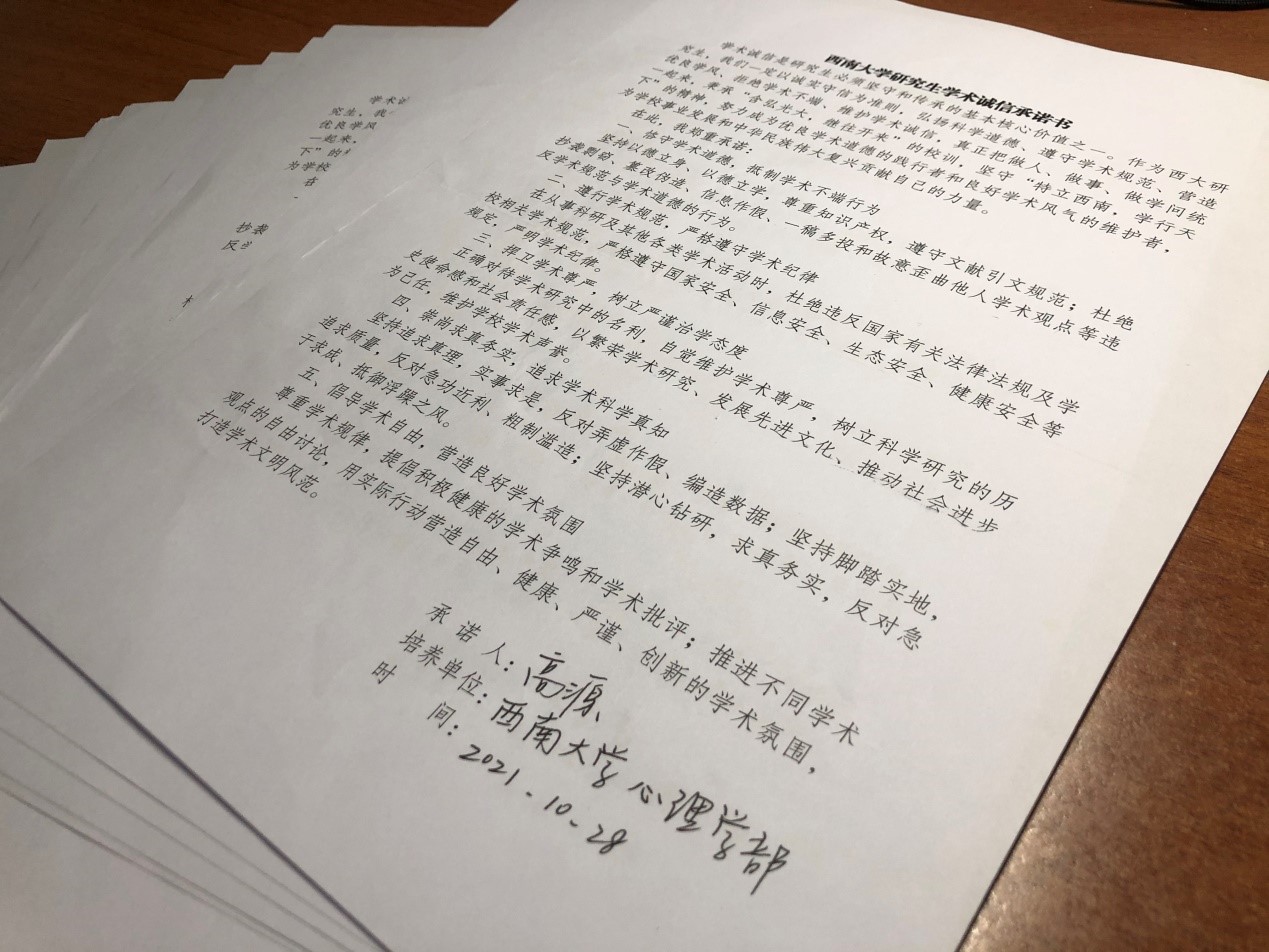 西南大学研究生学术诚信承诺书
学术诚信是研究生必须坚守和传承的基本核心价值之一。作为西大研
究生，我们一定以诚实守信为准则，弘扬科学道德、遵守学术规范、营造
优良学风、拒绝学术不端，维护学术诚信，真正把做人、做事、做学问统
一起来，秉承“含弘光大，继往开来”的校训，坚守“特立西南，学行天
下”的精神，努力成为优良学术道德的践行者和良好学术风气的维护者，
为学校事业发展和中华民族伟大复兴贡献自己的力量。
在此，我郑重承诺：
一、恪守学术道德，抵制学术不端行为
坚持以德立身、以德立学，尊重知识产权，遵守文献引文规范；杜绝
抄袭剽窃、篡改伪造、信息作假、一稿多投和故意歪曲他人学术观点等违
反学术规范与学术道德的行为。
二、遵行学术规范，严格遵守学术纪律
在从事科研及其他各类学术活动时，杜绝违反国家有关法律法规及学
校相关学术规范，严格遵守国家安全、信息安全、生态安全、健康安全等
规定，严明学术纪律。
三、捍卫学术尊严，树立严谨治学态度
正确对待学术研究中的名利，自觉维护学术尊严，树立科学研究的历
史使命感和社会责任感，以繁荣学术研究、发展先进文化、推动社会进步
为己任，维护学校学术声誉。
四、崇尚求真务实，追求学术科学真知
坚持追求真理，实事求是，反对弄虚作假、编造数据；坚持脚踏实地，
追求质量，反对急功近利、粗制滥造；坚持潜心钻研，求真务实，反对急
于求成、抵御浮躁之风。
五、倡导学术自由，营造良好学术氛围
尊重学术规律，提倡积极健康的学术争鸣和学术批评；推进不同学术
观点的自由讨论，用实际行动营造自由、健康、严谨、创新的学术氛围，
打造学术文明风范。
承 诺 人：高源
培养单位：西南大学心理学部
时 间：2021.10-28
学术
究生，我
优良学风
一起来，
下”的
为学校
在
抄袭
反